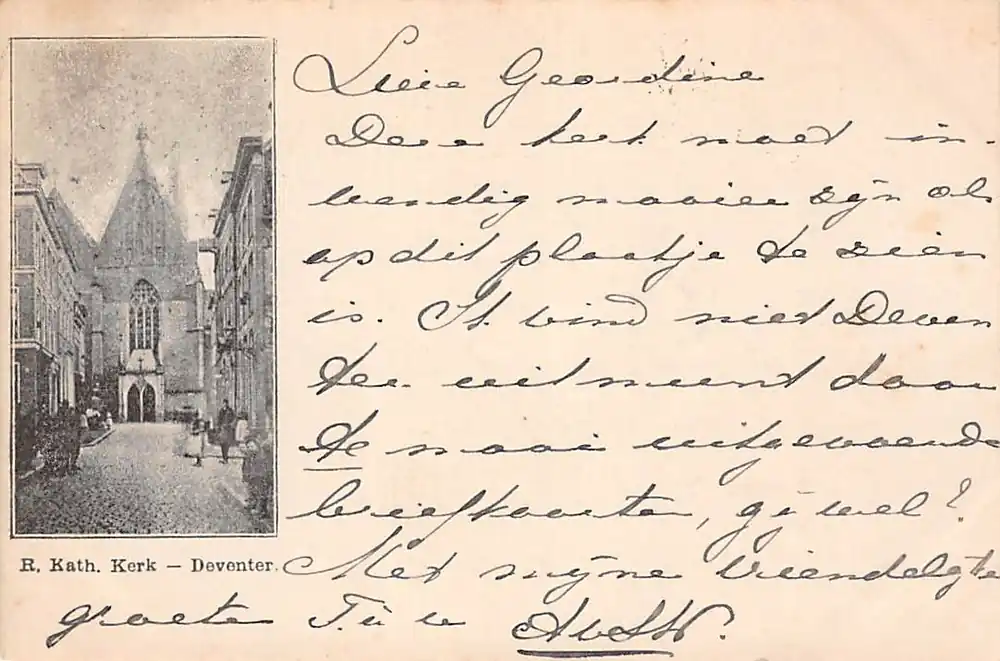 Lieve Geordine
Deze kerk moet in-
wendig mooier zijn als
op dit plaatje te zien
is. Ik vind niet Deven
ter uitmunt door
te mooi uitgevoerde
briefkaarten, gij wel?
R. Kath. Kerk – Deventer.
Met mijne vriendelijkste
groeten T. à v.